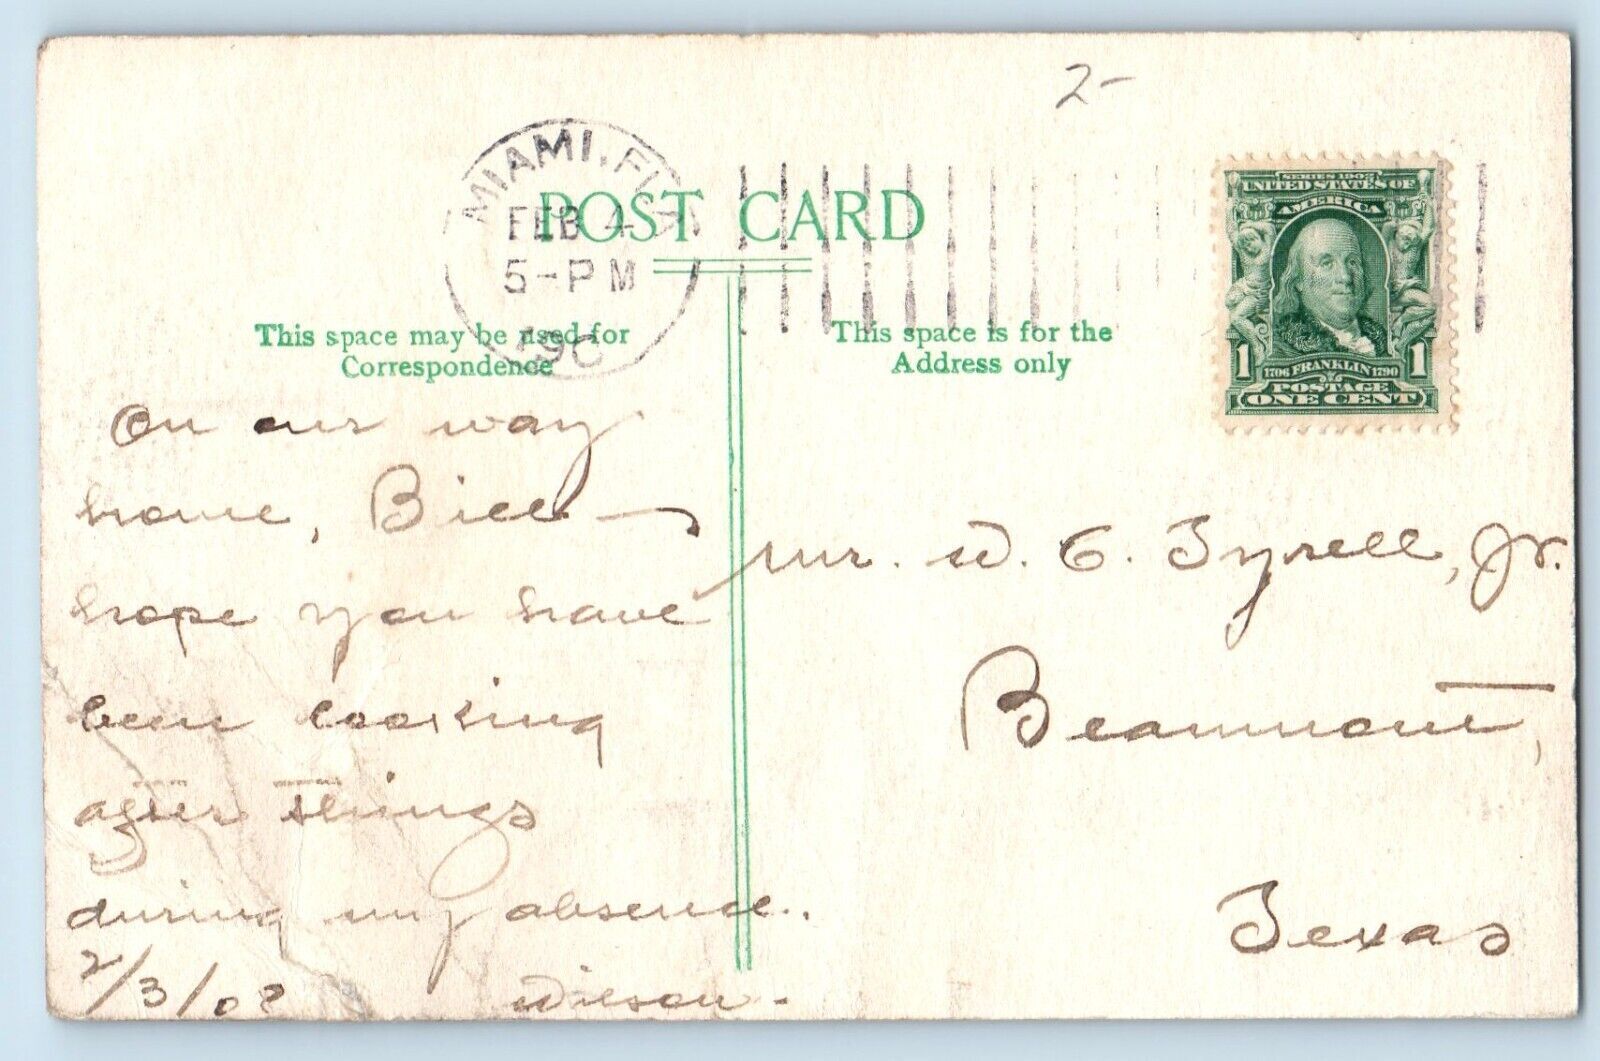 2-
MIAMI, FLA.
FEB 4
5-PM
190
POST CARD
This space may be used for
Correspondence
This space is for the
Address only
SERIES 1902
UNITED STATES OF
AMERICA
1 1706 FRANKLIN 1790 1
POSTAGE
ONE CENT
On our way
home, Bill —
hope you have
been looking
after things
during my absence.
2/3/08 Wilson.
Mr. W. C. Tyrell, Jr.
Beaumont,
Texas